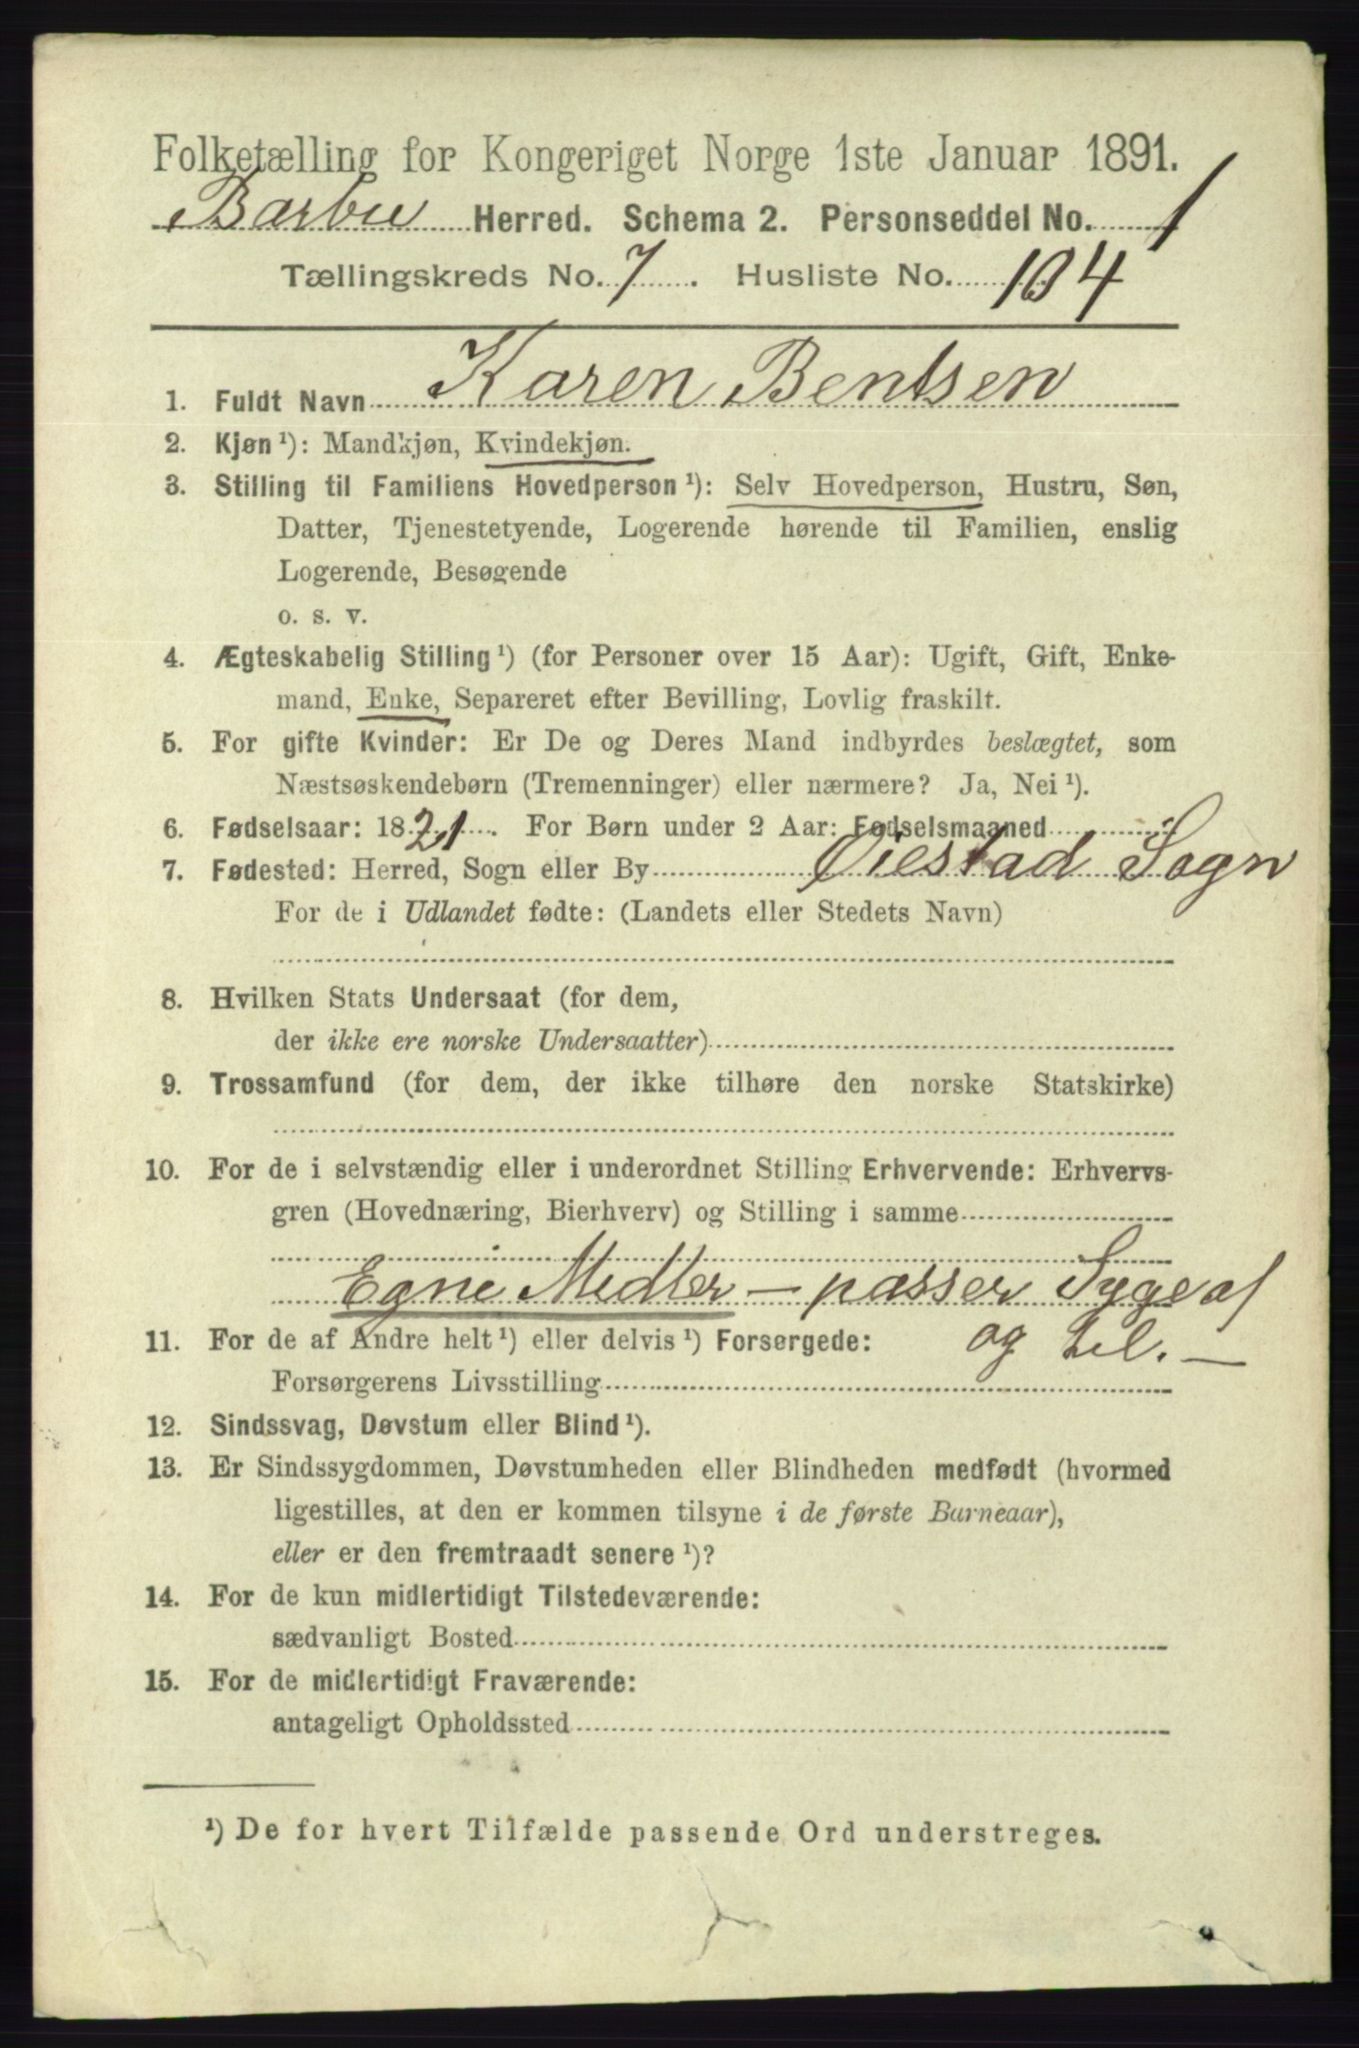 Folketælling for Kongeriget Norge 1ste Januar 1891.
Barbu Herred. Schema 2. Personseddel No. 1
Tællingskreds No. 7. Husliste No. 104
1. Fuldt Navn Karen Bentsen
2. Kjøn ¹): Mandkjøn, Kvindekjøn.
3. Stilling til Familiens Hovedperson ¹): Selv Hovedperson, Hustru, Søn,
Datter, Tjenestetyende, Logerende hørende til Familien, enslig
Logerende, Besøgende
o. s. v.
4. Ægteskabelig Stilling ¹) (for Personer over 15 Aar): Ugift, Gift, Enke-
mand, Enke, Separeret efter Bevilling, Lovlig fraskilt.
5. For gifte Kvinder: Er De og Deres Mand indbyrdes beslægtet, som
Næstsøskendebørn (Tremenninger) eller nærmere? Ja, Nei ¹).
6. Fødselsaar: 1821. For Børn under 2 Aar: Fødselsmaaned
7. Fødested: Herred, Sogn eller By Øiestad Sogn
For de i Udlandet fødte: (Landets eller Stedets Navn)
8. Hvilken Stats Undersaat (for dem,
der ikke ere norske Undersaatter)
9. Trossamfund (for dem, der ikke tilhøre den norske Statskirke)
10. For de i selvstændig eller i underordnet Stilling Erhvervende: Erhvervs-
gren (Hovednæring, Bierhverv) og Stilling i samme
Egne Midler – passer Syge af
og til. –
11. For de af Andre helt ¹) eller delvis ¹) Forsørgede:
Forsørgerens Livsstilling
12. Sindssvag, Døvstum eller Blind ¹).
13. Er Sindssygdommen, Døvstumheden eller Blindheden medfødt (hvormed
ligestilles, at den er kommen tilsyne i de første Barneaar),
eller er den fremtraadt senere ¹)?
14. For de kun midlertidigt Tilstedeværende:
sædvanligt Bosted
15. For de midlertidigt Fraværende:
antageligt Opholdssted
¹) De for hvert Tilfælde passende Ord understreges.